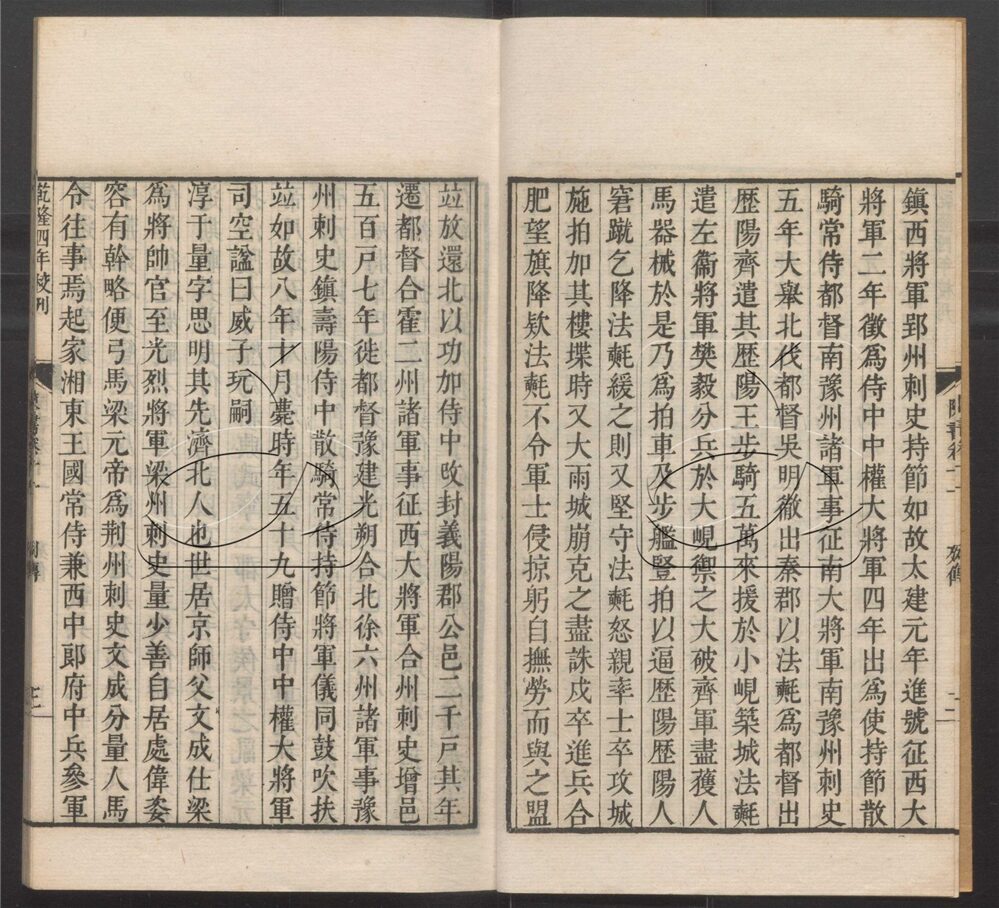 鎮西將軍郢州刺史持節如故太建元年進號征西大
將軍二年徵爲侍中中權大將軍四年出爲使持節散
騎常侍都督南豫州諸軍事征南大將軍南豫州刺史
五年大舉北伐都督吳明徹出秦郡以法𣰰爲都督出
歷陽齊遣其歷陽王步騎五萬來援於小峴築城法𣰰
遣左衞將軍樊毅分兵於大峴禦之大破齊軍盡獲人
馬器械於是乃爲拍車及步艦豎拍以逼歷陽歷陽人
窘蹴乞降法𣰰緩之則又堅守法𣰰怒親率士卒攻城
施拍加其樓堞時又大雨城崩克之盡誅戍卒進兵合
肥望旗降欵法𣰰不令軍士侵掠躬自撫勞而與之盟
竝放還北以功加侍中攺封義陽郡公邑二千戸其年
遷都督合霍二州諸軍事征西大將軍合州刺史增邑
五百戸七年徙都督豫建光朔合北徐六州諸軍事豫
州刺史鎮壽陽侍中散騎常侍持節將軍儀同鼓吹扶
竝如故八年十月薨時年五十九贈侍中中權大將軍
司空諡曰威子玩嗣
淳于量字思明其先濟北人也世居京師父文成仕梁
爲將帥官至光烈將軍梁州刺史量少善自居處偉姿
容有幹略便弓馬梁元帝爲荆州刺史文成分量人馬
令往事焉起家湘東王國常侍兼西中郎府中兵參軍
乾隆四年校刋